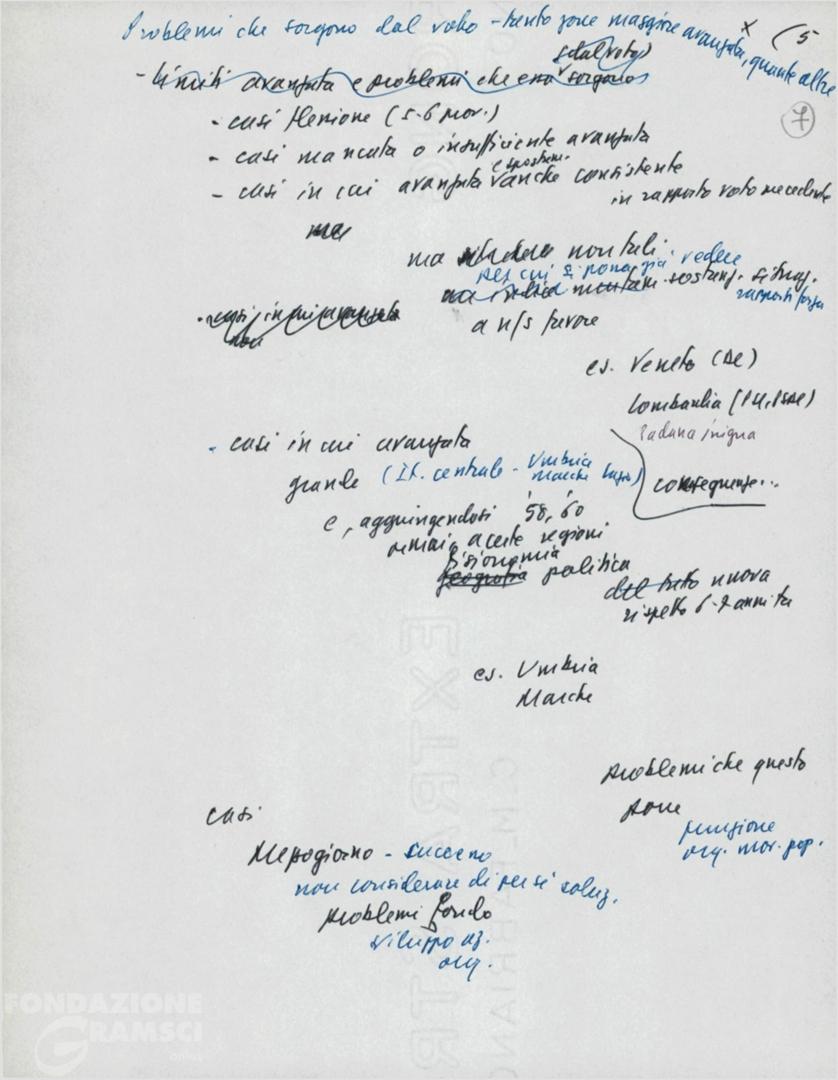 Problemi che sorgono dal voto - tanto zone maggiore avanzata, quante altre
x (5
(dal voto)
- limiti avanzata e problemi che essa sorgono
7
- casi flessione (5-6 prov.)
- casi mancata o insufficiente avanzata
e spostam.
- casi in cui avanzata anche consistente
in rapporto voto precedente
ma
ma non tali
per cui si possa già vedere
sostanz. situaz.
rapporti forza
- casi in cui avanzata
non
a n/s favore
es. Veneto (DC)
Lombardia (PLI, PSDI)
Padana irrigua
- casi in cui avanzata
grande (It. centrale - Umbria
Marche Lazio)
conseguenze...
e, aggiungendosi '58, '60
ormai a certe regioni
fisionomia
geografia politica
del tutto nuova
rispetto 6-7 anni fa
es. Umbria
Marche
problemi che questo
pone
funzione
org. mov. pop.
casi
Mezzogiorno - successo
non considerare di per sé soluz.
problemi fondo
sviluppo az.
org.
EXTRA
C.M. FABRIANO
FONDAZIONE
GRAMSCI
onlus